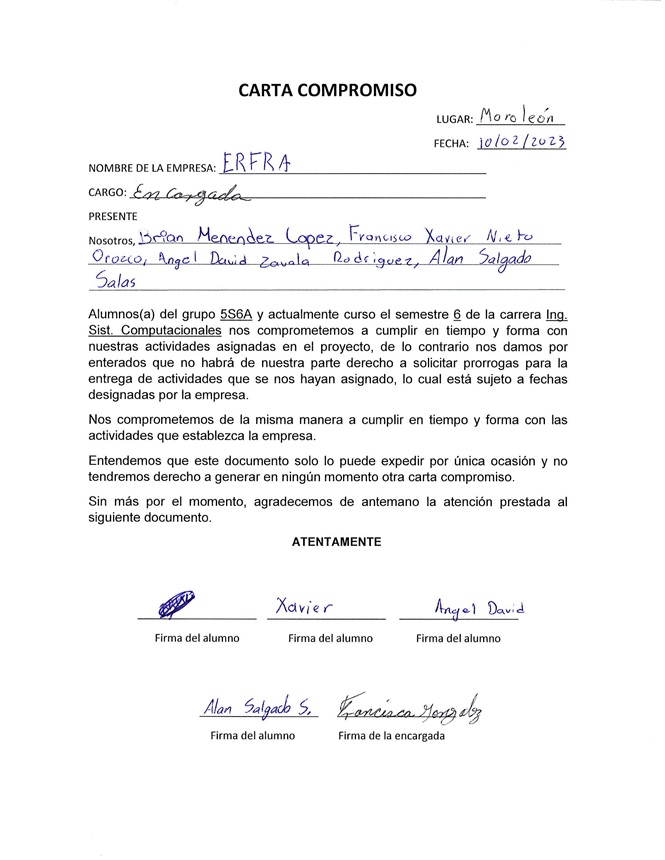 CARTA COMPROMISO
LUGAR: Moroleón
FECHA: 10/02/2023
NOMBRE DE LA EMPRESA: ERFRA
CARGO: Encargada
PRESENTE
Nosotros, Brian Menendez Lopez, Francisco Xavier Nieto
Orozco, Angel David Zavala Rodriguez, Alan Salgado
Salas
Alumnos(a) del grupo 5S6A y actualmente curso el semestre 6 de la carrera Ing.
Sist. Computacionales nos comprometemos a cumplir en tiempo y forma con
nuestras actividades asignadas en el proyecto, de lo contrario nos damos por
enterados que no habrá de nuestra parte derecho a solicitar prorrogas para la
entrega de actividades que se nos hayan asignado, lo cual está sujeto a fechas
designadas por la empresa.
Nos comprometemos de la misma manera a cumplir en tiempo y forma con las
actividades que establezca la empresa.
Entendemos que este documento solo lo puede expedir por única ocasión y no
tendremos derecho a generar en ningún momento otra carta compromiso.
Sin más por el momento, agradecemos de antemano la atención prestada al
siguiente documento.
ATENTAMENTE
Xavier Angel David
Firma del alumno Firma del alumno Firma del alumno
Alan Salgado S. Francisca Gonzalez
Firma del alumno Firma de la encargada